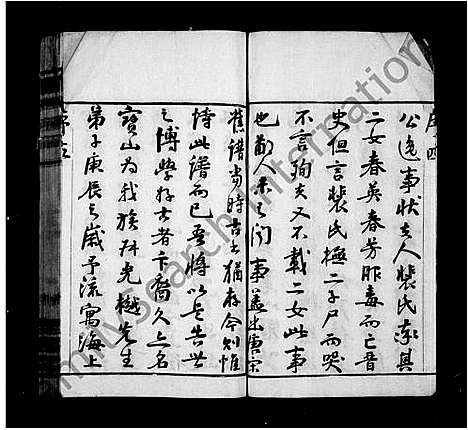 序四
公逸事状夫人裴氏率其
二女春英春芳服毒而亡晋
史但言裴氏抚二子尸而哭
不言殉夫又不載二女此事
也鄙人未之聞事蓋出唐宋
舊譜當時古書猶存今則惟
恃此譜而已吾將以是告世
之博學好古者卞裔久之名
寳山为我族叔光樾先生
弟子庚辰之歲予流寓海上
序五
MySearch International